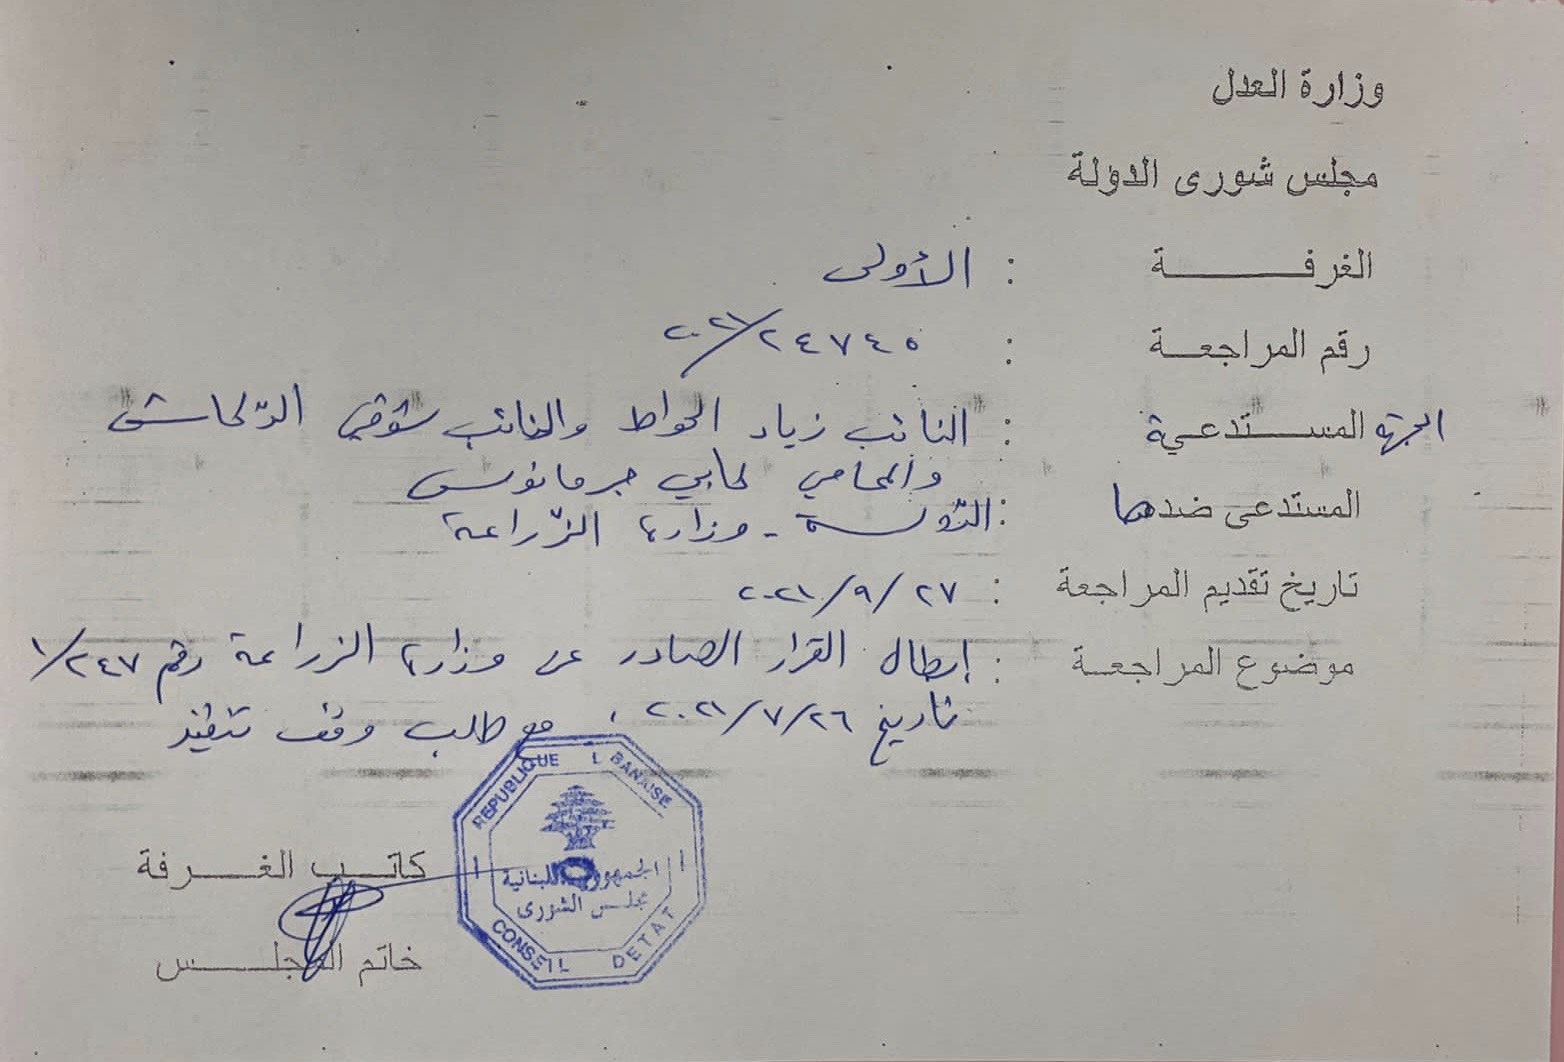 وزارة العدل
مجلس شورى الدولة
الغرفـــــــة : الأولى
رقم المراجعـة : ٢٤٧٤٥/٢٠٢١
الجهة المستدعية : النائب زياد الحواط والنائب شوقي الدّكاش
والمحامي جرمانوس
المستدعى ضدها : الدّولة - وزارة الزّراعة
تاريخ تقديم المراجعة : ٢٧/٩/٢٠٢١
موضوع المراجعـة : إبطال القرار الصادر عن وزارة الزراعة رقم ٢٤٧/١
تاريخ ٢٦/٧/٢٠٢١، مع طلب وقف تنفيذ
REPUBLIQUE LIBANAISE
الجمهورية اللبنانية
مجلس الشورى
CONSEIL DETAT
كاتــب الغــــرفة
خاتم المجلــــس